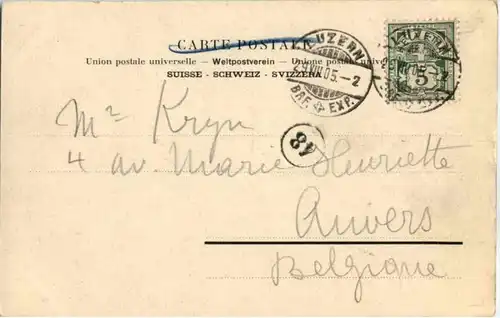 CARTE POSTALE
Union postale universelle — Weltpostverein — Unione postale
SUISSE - SCHWEIZ - SVIZZERA
LUZERN
29.VIII.05.-2
BRF. EXP.
5
48
Mr Kryn
4 av. Marie Henriette
Anvers
Belgique